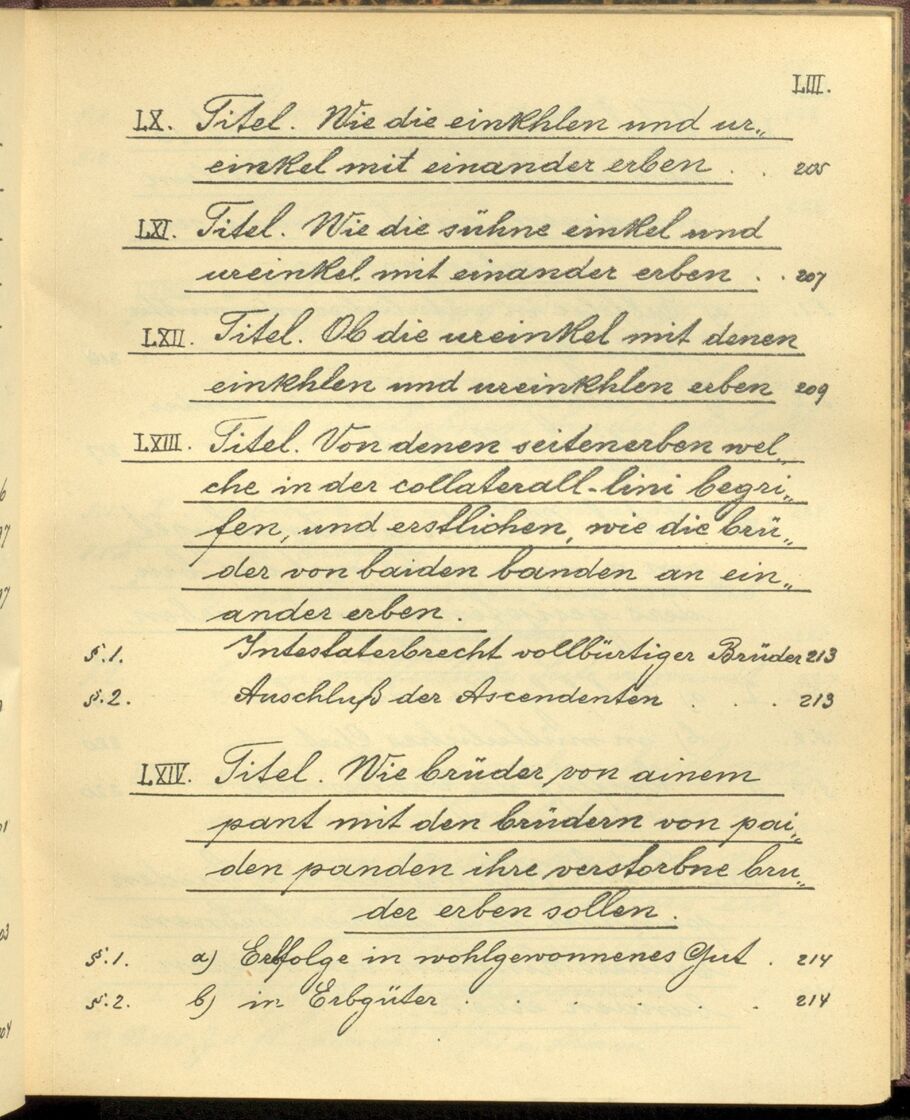 LIII.
LX. Titel. Wie die einkhlen und ur„
einkel mit einander erben . . 205
LXI. Titel. Wie die sühne einkel und
ureinkel mit einander erben . . 207
LXII. Titel. Ob die ureinkel mit denen
einkhlen und ureinkhlen erben 209
LXIII. Titel. Von denen seitenerben wel„
che in der collaterall-lini begri„
fen, und erstlichen, wie die brü„
der von baiden banden an ein„
ander erben.
§.1. Intestaterbrecht vollbürtiger Brüder 213
§.2. Auschluß der Ascendenten . . . 213
LXIV. Titel. Wie brüder von ainem
pant mit den brüdern von pai„
den panden ihre verstorbne bru„
der erben sollen.
§.1. a) Erbfolge in wohlgewonnenes Gut . 214
§.2. b) in Erbgüter . . . . . . 214